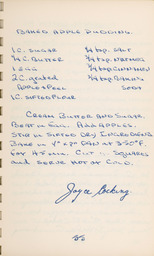 BAKED APPLE PUDDING.
1 C. SUGAR 1/4 tsp. SALT
1/4 C. BUTTER 1/4 tsp. NUTMEG
1 EGG 1/4 tsp. CINNAMON
2 C. grated 3/4 tsp. BAKING
APPLE & PEEL SODA
1 C. SIFTED FLOUR
CREAM BUTTER AND SUGAR.
BEAT IN EGG. ADD APPLES.
STIR IN SIFTED DRY INGREDIENTS
BAKE IN PAN AT 350°F.
45 MIN. CUT IN SQUARES
AND SERVE HOT OR COLD.
Joyce